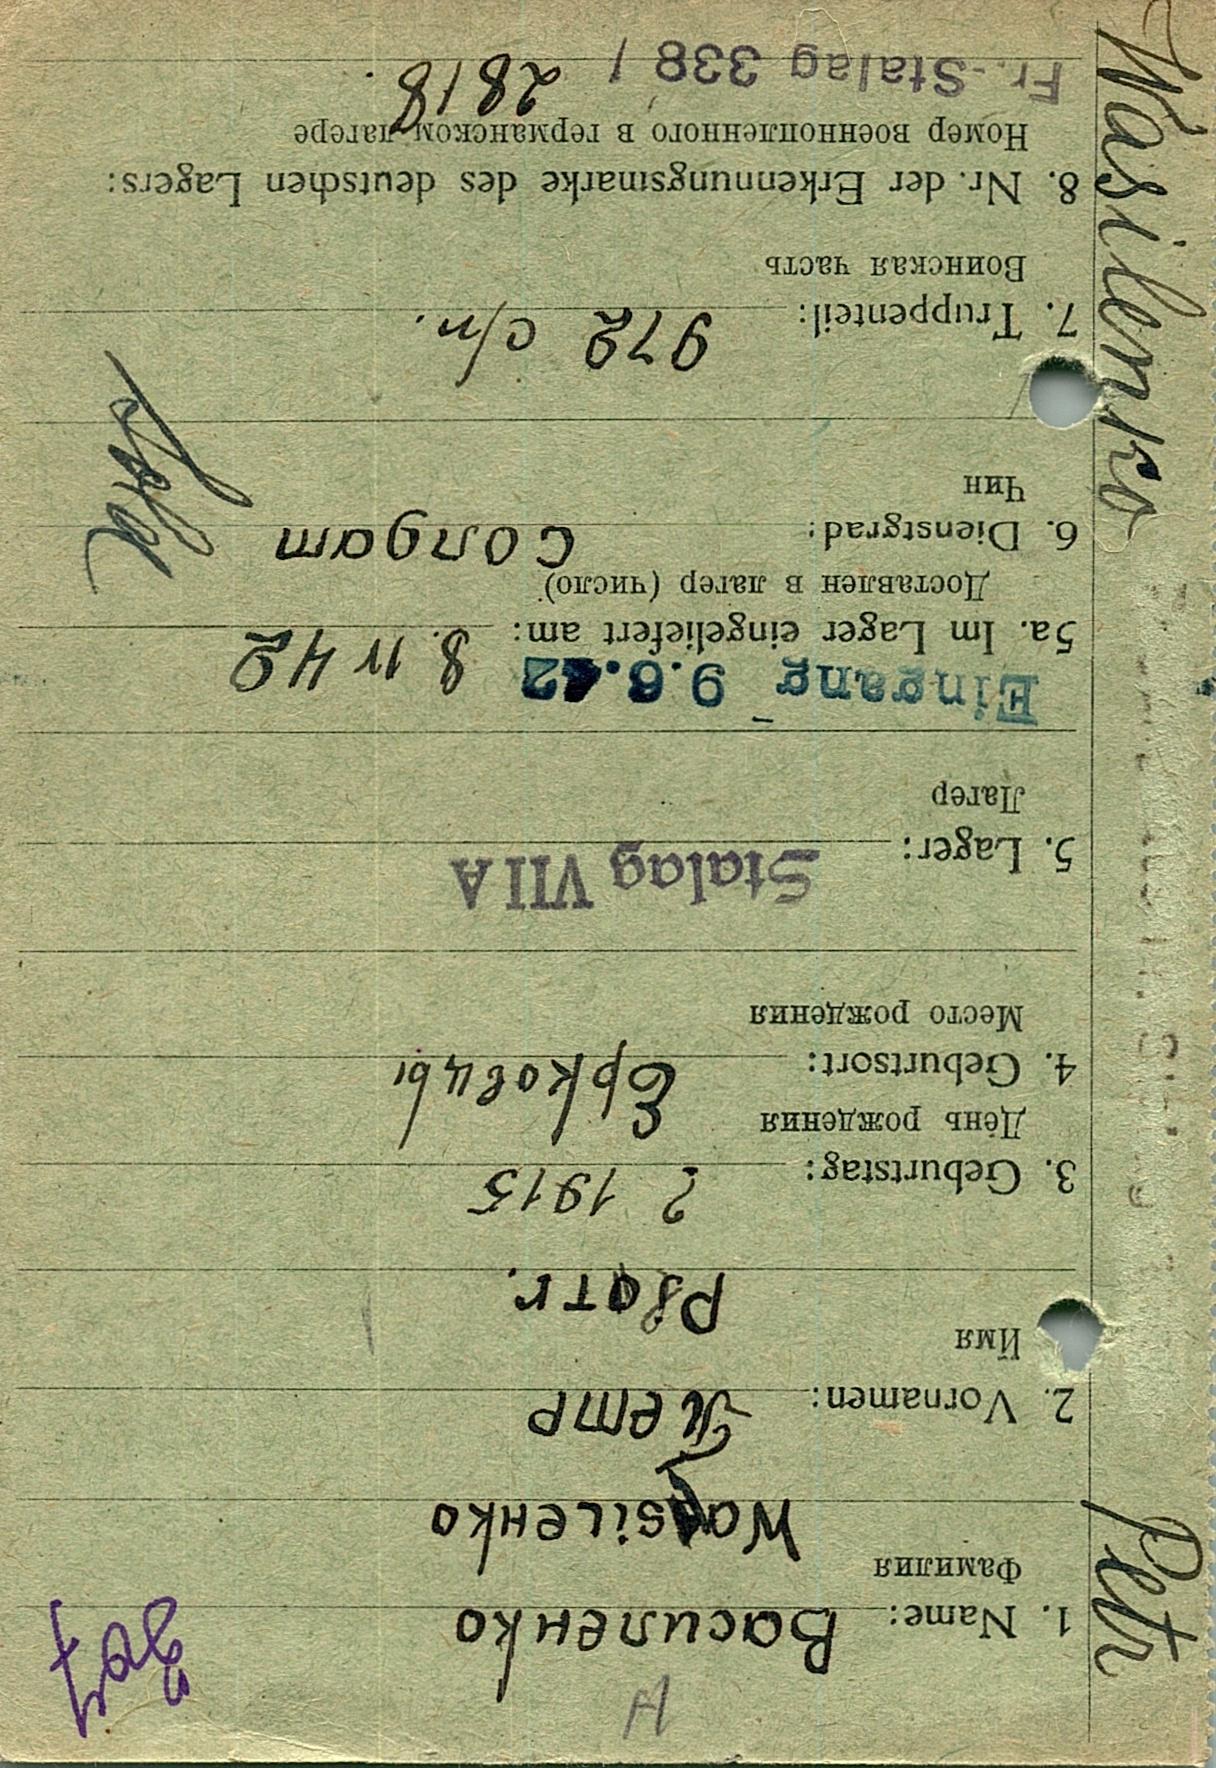 Wasilenko Petr
1. Name: Василенко
Фамилия
Wassilенко
2. Vornamen: Петр
Имя
3. Geburtstag: ? 1915
День рождения
4. Geburtsort: Ерковцы
Место рождения
5. Lager: Stalag VII A
Лагер
Eingang 9.6.42 8 IV 42
5a. Im Lager eingeliefert am:
Доставлен в лагер (число)
6. Dienstgrad: солдат
Чин
7. Truppenteil: 972 с/п.
Воинская часть
8. Nr. der Erkennungsmarke des deutschen Lagers:
Номер военнопленного в германском лагере
Fr.-Stalag 338 / 2818.